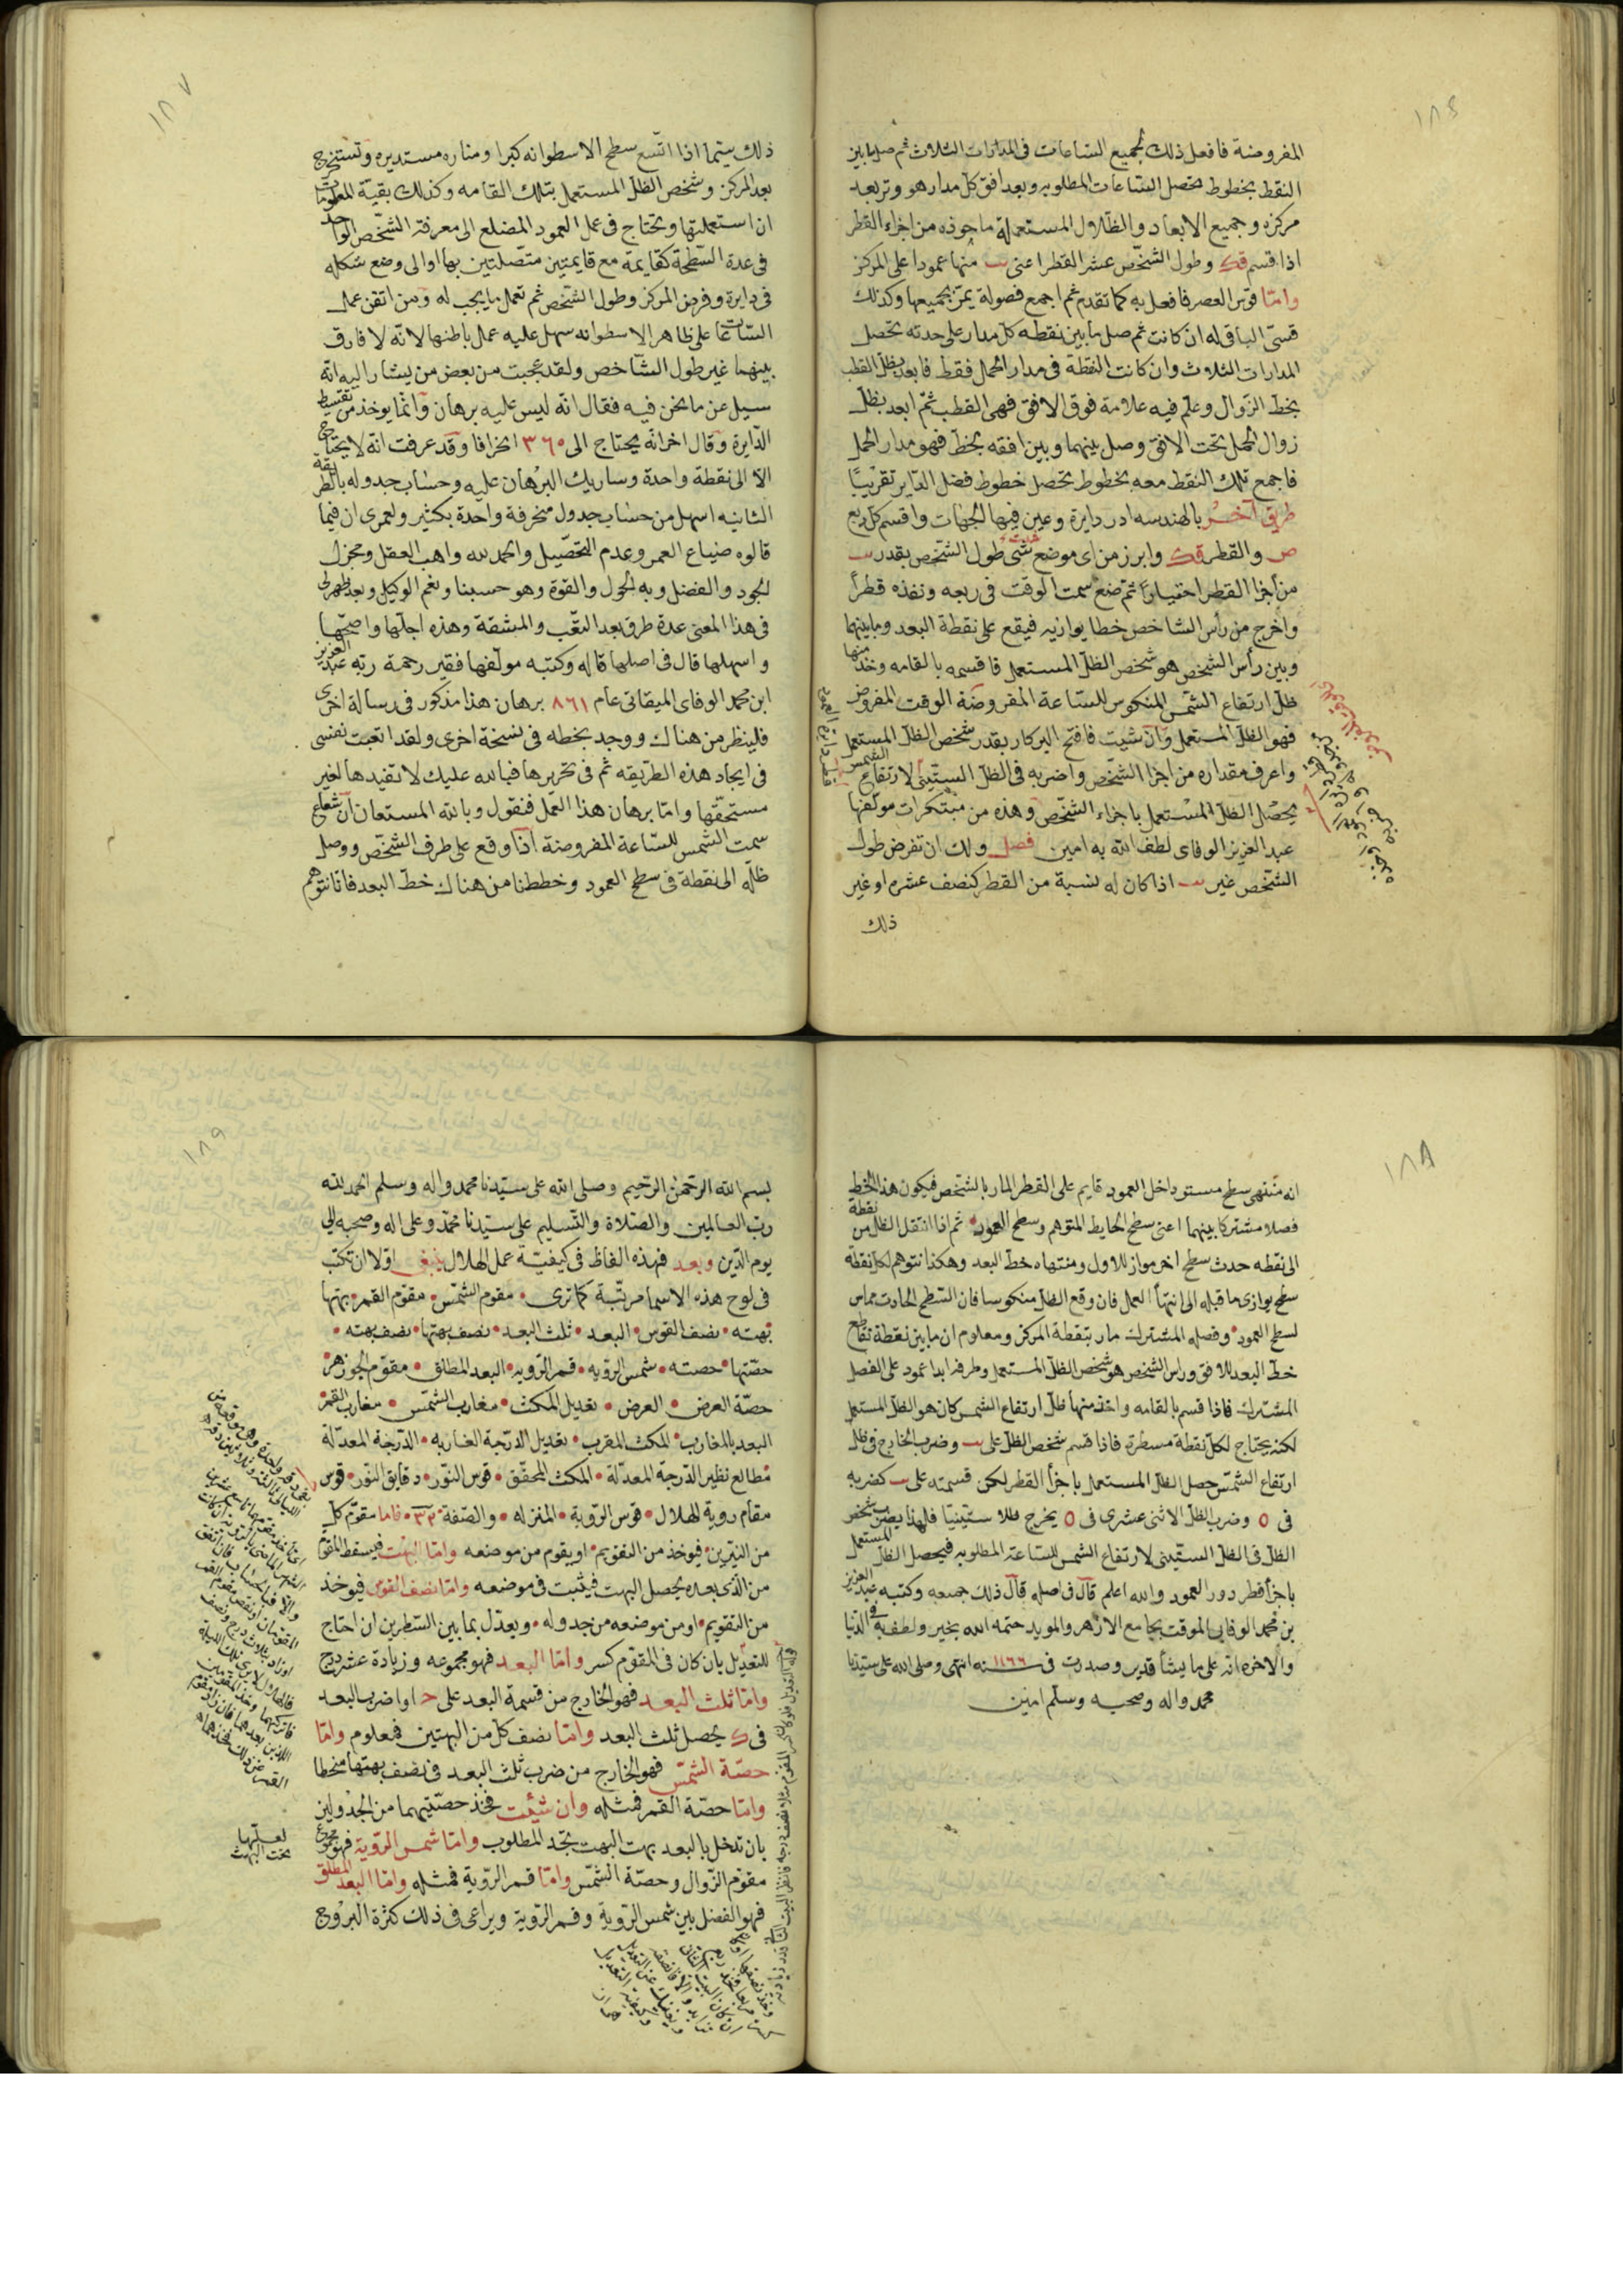 ١٨٤
المفروضة فافعل ذلك لجميع الساعات فى المدارات الثلاث ثم صل مابين
النقط بخطوط تحصل الساعات المطلوبه وبعد افق كل مدار هو وتر بعد
مركزه وجميع الابعاد والظلال المستعملة ماخوذه من اجزاء القطر
اذا قسم قك وطول الشخص عشر القطر اعنى يب منها عمودا على المركز
وامّا قوس العصر فافعل به كما تقدم ثم اجمع فصوله يمرّ بجميعها وكذلك
قسىّ الباقى له ان كانت ثم صل مابين نقطه كل مدار على حدته تحصل
المدارات الثلاث وان كانت النقطة فى مدار الحمل فقط فابعد بظل القطب
بخط الزوال وعلّم فيه علامة فوق الافق فهى القطب ثم ابعد بظل
زوال الحمل تحت الافق وصل بينهما وبين افقه بخط فهو مدار الحمل
فاجمع تلك النقط معه بخطوط تحصل خطوط فضل الداير تقريبًا
طريق آخر بالهندسه ادر دايرة وعين فيها الجهات واقسم كل ربع
ص والقطر قك وابرز من اى موضع شئت طول الشخص بقدر يب
من اجزا القطر احتياراً ثم ضع سمت الوقت فى ربعه ونفذه قطراً
واخرج من رأس الشاخص خطا يوازيه فيقع على نقطة البعد ومابينهما
وبين رأس الشخص هو شخص الظل المستعمل فاقسمه بالقامه وخذ منها
ظل ارتفاع الشمس المنكوس للساعة المفروضة الوقت المفروض
فهو الظل المستعمل وان شيت فافتح البركار بقدر شخص الظل المستعمل
واعرف مقداره من اجزا الشخص واضربه فى الظل الستينى لارتفاع الشمس
يحصل الظل المستعمل باجزاء الشخص وهذه من مبتكرات مولفها
عبد العزيز الوفاى لطف الله به امين فصل ولك ان تفرض طول
الشخص غير يب اذا كان له نسبة من القطر كنصف عشره او غير
ذلك
١٨٧
ذلك سيّما اذا اتسع سطح الاسطوانه كبرا ومناره مستديره وتستخرج
بعد المركز وشخص الظل المستعمل بتلك القامه وكذلك بقية المعلومات
ان استعملتها وتحتاج فى عمل العمود المضلع الى معرفة الشخص الواحد
فى عدة السطحة كقايمة مع قايمتين متصلتين بها او الى وضع شكله
فى دايرة وفرض المركز وطول الشخص ثم تعمل ما يجب له ومن اتقن عمل
الساعات على ظاهر الاسطوانه سهل عليه عمل باطنها لانه لا فارق
بينهما غير طول الشاخص ولقد عجبت من بعض من يشار اليه انه
سيل عن ما نحن فيه فقال انه ليس عليه برهان وانما يوخذ من تقسيط
الدّايرة وقال اخر انه يحتاج الى ٣٦٥ انحرافا وقد عرفت انه لا يحتاج
الا الى نقطة واحدة وساريك البرهان عليه وحساب جدوله بالطريقة
الثانيه اسهل من حساب جدول منحرفة واحدة بكثير ولعمرى ان فيما
قالوه ضياع العمر وعدم التحصّيل والحمد لله واهب العقل ومجزل
الجود والفضل وبه الحول والقوة وهو حسبنا ونعم الوكيل وبعد ظهر لى
فى هذا المعنى عدة طرق بعد التعب والمشقة وهذه اجلّها واصحّها
واسهلها قال فى اصلها قاله وكتبه مولفها فقير رحمة ربه عبد العزيز
ابن محمد الوفاى الميقاتى عام ٨٦١ برهان هذا مذكور فى رسالة اخرى
فلينظر من هناك ووجد بخطه فى نسخة اخرى ولقد اتعبت نفسى
فى ايجاد هذه الطريقه ثم فى تحريرها فبالله عليك لا تفيدها لغير
مستحقّها وامّا برهان هذا العمل فنقول وبالله المستعان ان شعاع
سمت الشمس للساعة المفروضة اذا وقع على طرف الشخص ووصل
ظله الى نقطة فى سطح العمود وخططنا من هناك خط البعد فانا نتوهم
١٨٨
انه منتهى سطح مستو داخل العمود قايم على القطر المار بالشخص فيكون هذا الخط
فصلا مشتركا بينهما اعنى سطح الحايط المتوهم وسطح العمود ثم اذا انتقل الظل من نقطة
الى نقطه حدث سطح اخر مواز للاول ومنتهاه خط البعد وهكذا نتوهم لكل نقطة
سطح يوازى ما قبله الى انتهأ العمل فان وقع الظل منكوسا فان السطح الحادث مماس
لسطح العمود وفصله المشترك مار بنقطة المركز ومعلوم ان مابين نقطة تقاطع
خط البعد للافق وراس الشخص هو شخص الظل المستعمل وطرفه ابدا عمود على الفصل
المشترك فاذا قسم بالقامه واخذ منها ظل ارتفاع الشمس كان هو الظل المستعمل
لكنه يحتاج لكل نقطة مسطرة فاذا قسم شخص الظل على يب وضرب الخارج فى ظل
ارتفاع الشمس حصل الظل المستعمل باجزأ القطر لكن قسمته على يب كضربه
فى ٥ وضرب الظل الاثنى عشرى فى ٥ يخرج ظلا ستينيّا فلهذا يضرب شخص
الظل فى الظل الستينى لارتفاع الشمس للساعة المطلوبه فيحصل الظل المستعمل
باجزأ قطر دور العمود والله اعلم قال فى اصله قال ذلك جمعه وكتبه عبد العزيز
بن محمد الوفايى الموقت بجامع الازهر والمويد ختمه الله بخير ولطف به فى الدنيا
والاخره انه على ما يشأ قدير وصدرت فى سنه ١١٦٦ انتهى وصلى الله على سيدنا
محمد واله وصحبه وسلم امين
١٨٩
بسم الله الرحمن الرحيم وصلى الله على سيّدنا محمد واله وسلم الحمد لله
ربّ العالمين والصّلاة والتسليم على سيّدنا محمّد وعلى اله وصحبه الى
يوم الدّين وبعد فهذه الفاظ فى كيفيّة عمل الهلال ينبغى اوّلا ان تكتب
فى لوح هذه الاسما مرتّبة كما ترى مقوم الشمس مقوّم القمر بهتها
بهته نصف القوس البعد ثلث البعد نصف بهتها نصف بهته
حصّتها حصته شمس الرؤيه قمر الرّويه البعد المطلق مقوّم الجوزهر
حصّة العرض العرض تعديل المكث مغارب الشمس مغارب القمر
البعد بالمغارب المكث المقرب تعديل الدّرجة الغاربه الدّرجة المعدّلة
مطالع نظير الدّرجة المعدّلة المكث المحقّق قوس النوّر دقايق النور قوس
مقام روية الهلال قوس الرّوية المنزله والصّفة ٣٣ فاما مقوّم كلّ
من النيرين فيوخذ من التقويم او يقوم من موضعه وامّا البهت فيسقط المقوم
من الذى بعده يحصل البهت فيثبت فى موضعه وامّا نصف القوس فيوخذ
من التقويم او من موضعه من جدوله ويعدّل بما بين السّطرين ان احتاج
للتعديل بان كان فى المقوّم كسر وامّا البعد فهو مجموعه وزيادة عشر درج
وامّا ثلث البعد فهو الخارج من قسمة البعد على ح او اضرب البعد
فى ك يحصل ثلث البعد وامّا نصف كل من البهتين فمعلوم وامّا
حصّة الشمّس فهو الخارج من ضرب ثلث البعد فى نصف بهتها منحطا
وامّا حصّة القمر فمثله وان شئت فخذ حصّتيهما من الجدولين
بان تدخل بالبعد بهت البهت تجد المطلوب وامّا شمس الرّؤية فهو مجموع
مقوّم الزّوال وحصّة الشمّس وامّا قمر الرّوية فمثله وامّا البعد المطلق
فهو الفضل بين شمس الرّوية وقمر الرّوية ويراعى فى ذلك كثرة البروج
لعلّها
تحت البهت